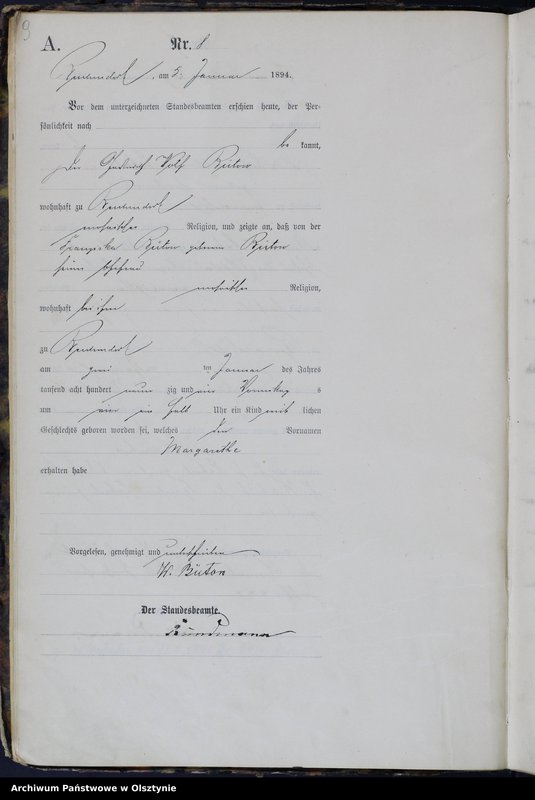 9
A.
Nr. 8
am 5. Januar 1894.
Vor dem unterzeichneten Standesbeamten erschien heute, der Per-
sönlichkeit nach
be kannt,
der Wolf Bütow
wohnhaft zu
mosaischer Religion, und zeigte an, daß von der
Franziska Bütow geborene Bütow
seiner Ehefrau
mosaischer Religion,
wohnhaft bei ihm
zu
am zwei ten Januar des Jahres
tausend acht hundert neun zig und vier Vormittag s
um vier ein halb Uhr ein Kind weib lichen
Geschlechts geboren worden sei, welches den Vornamen
Margarethe
erhalten habe
Vorgelesen, genehmigt und unterschrieben
W. Bütow
Der Standesbeamte.
Archiwum Państwowe w Olsztynie